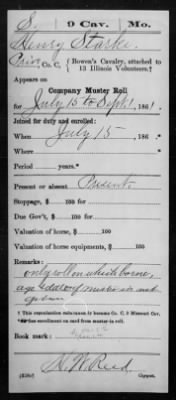 S. 9 Cav. Mo.
Henry Starke.
Priv., Co. C, { Bowen's Cavalry, attached to 13 Illinois Volunteers.†
Appears on
Company Muster Roll
for July 15 to Sept 1, 1861.
Joined for duty and enrolled:
When July 15, 186 .
Where
Period years.*
Present or absent Present
Stoppage, $ 100 for
Due Gov't, $ 100 for
Valuation of horse, $ 100
Valuation of horse equipments, $ 100
Remarks:
only roll on which borne,
age & date of muster in not
given
† This organization subsequently became Co. C, 9 Missouri Cav.
*See enrollment on card from muster-in roll.
Book mark:
H. W. Reed
Copyist.